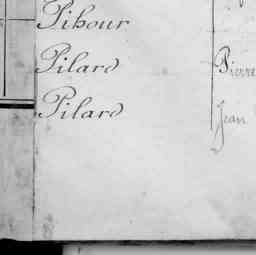 Pihour
Pilard Pierre
Pilard Jean